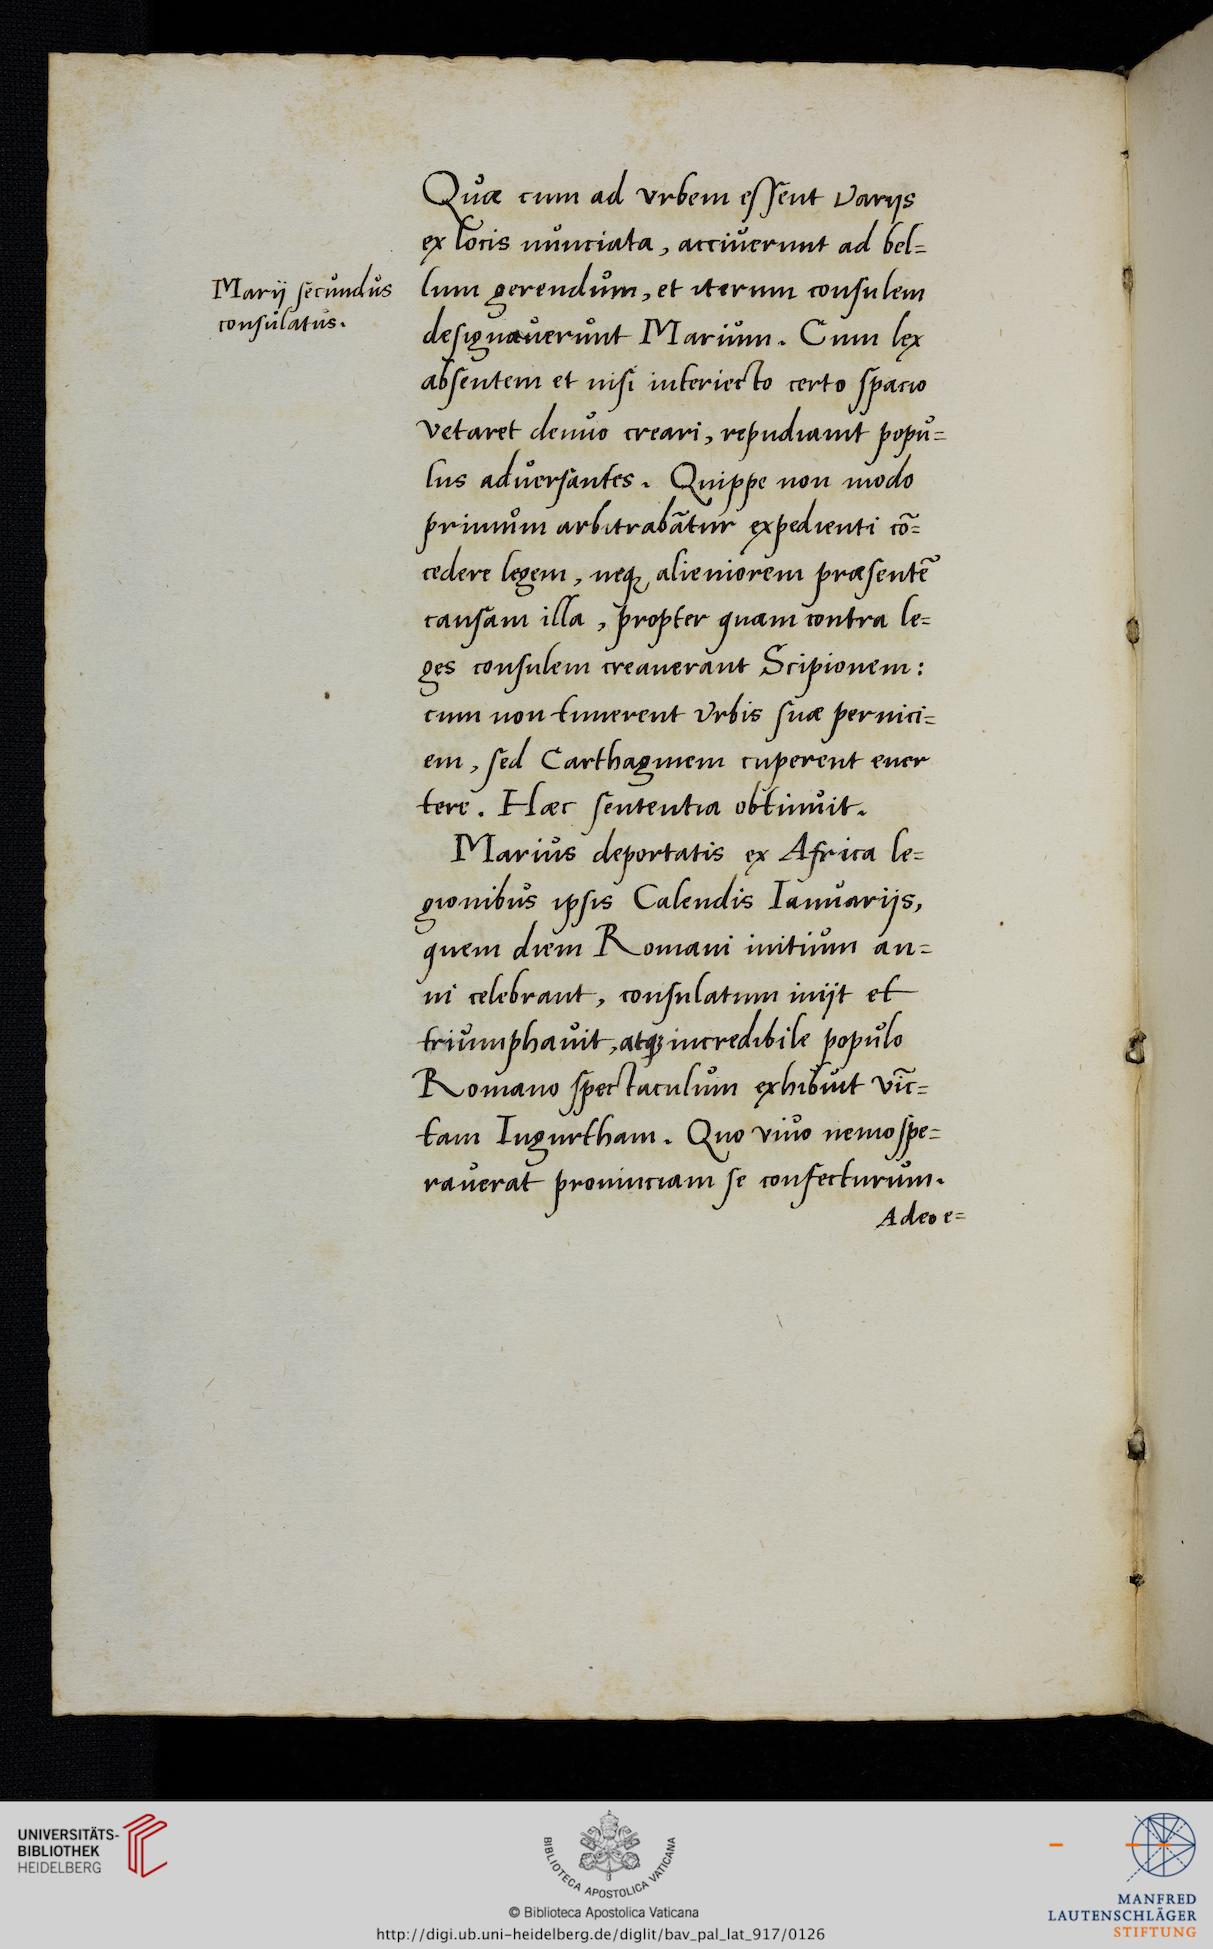 Quæ cum ad vrbem essent varijs
ex locis nunciata, acciuerunt ad bel=
Marij secundus
consulatus.
lum gerendum, et iterum consulem
designauerunt Marium. Cum lex
absentem et nisi interiecto certo spacio
vetaret denuo creari, repudiauit popu=
lus aduersantes. Quippe non modo
primum arbitrabãtur expedienti cõ=
cedere legem, neq; alieniorem præsentẽ
causam illa, propter quam contra le=
ges consulem creauerant Scipionem:
cum non timerent vrbis suæ pernici=
em, sed Carthaginem cuperent euer
tere. Hæc sententia obtinuit.
Marius deportatis ex Africa le=
gionibus ipsis Calendis Ianuarijs,
quem diem Romani initium an=
ni celebrant, consulatum inijt et
triumphauit, atq; incredibile populo
Romano spectaculum exhibuit vic̃=
tam Iugurtham. Quo viuo nemo spe=
rauerat prouinciam se confecturum.
Adeo e=
UNIVERSITÄTS-
BIBLIOTHEK
HEIDELBERG
BIBLIOTECA APOSTOLICA VATICANA
© Biblioteca Apostolica Vaticana
http://digi.ub.uni-heidelberg.de/diglit/bav_pal_lat_917/0126
MANFRED
LAUTENSCHLÄGER
STIFTUNG